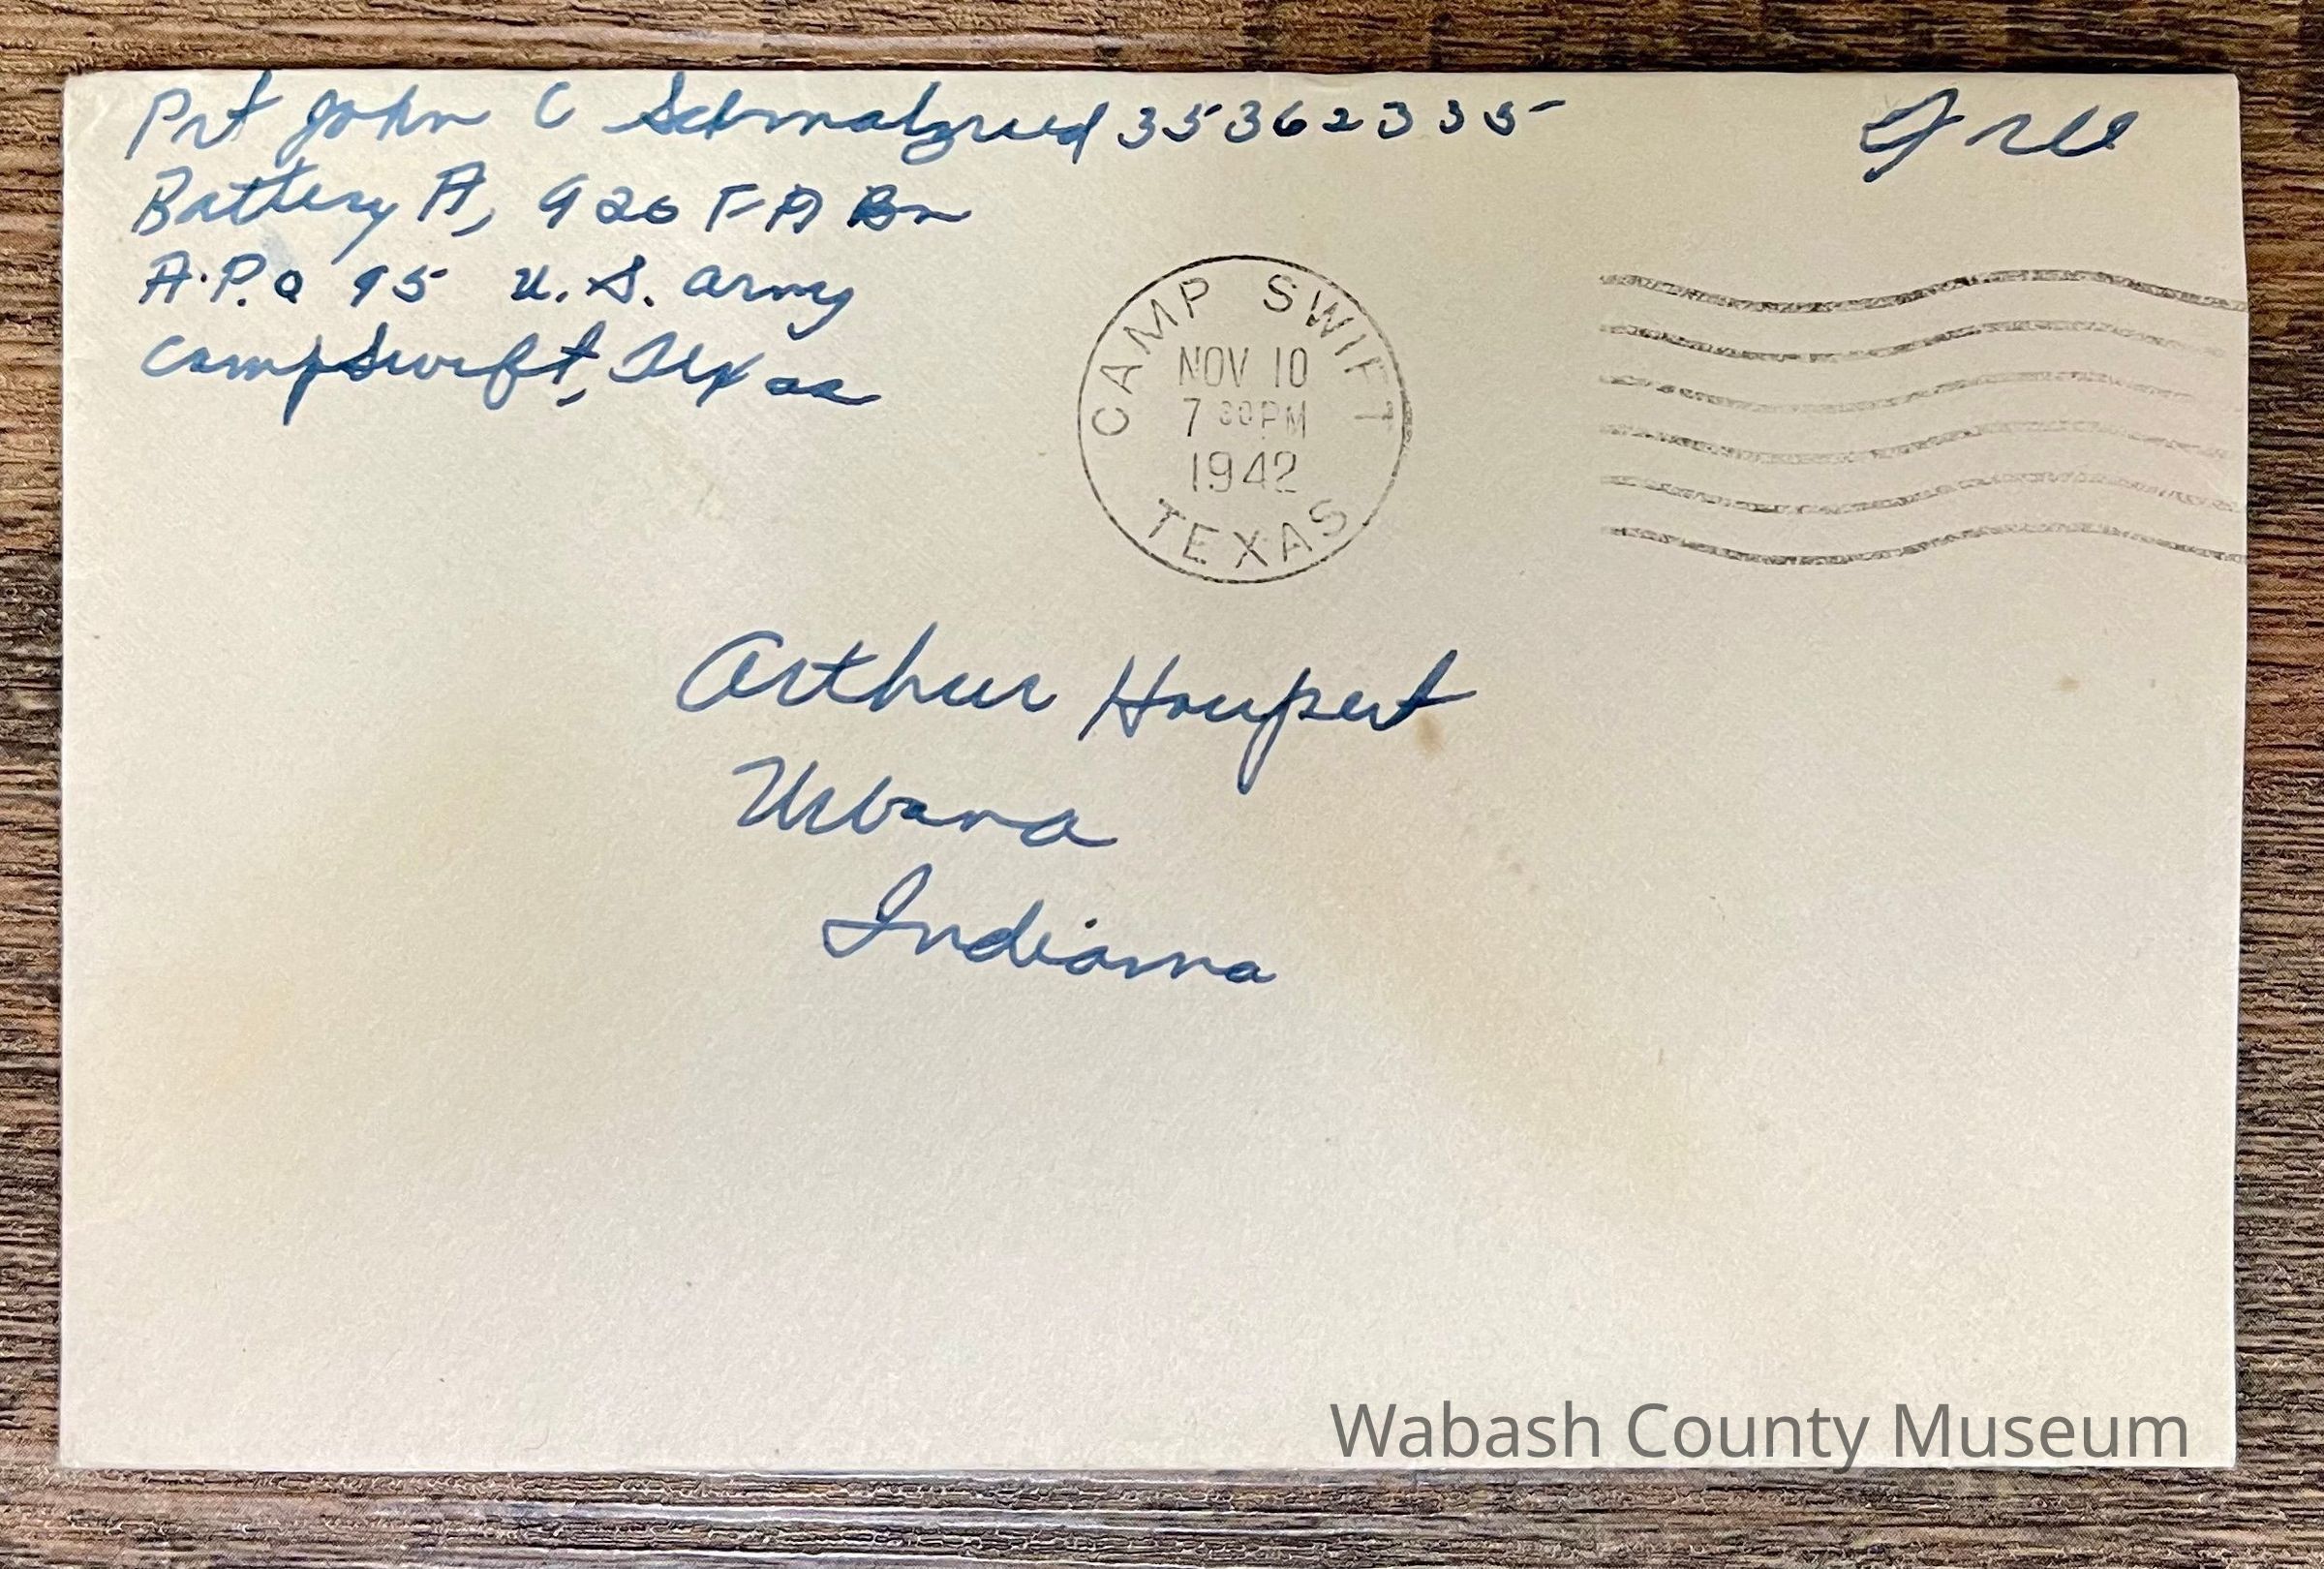 Pvt John C Schmalzried 35362335
Free
Battery A, 920 F A Bn
A.P.O 95 U.S. Army
Camp Swift, Texas
CAMP SWIFT
NOV 10
7 30 PM
1942
TEXAS
Arthur Houpert
Urbana
Indiana
Wabash County Museum